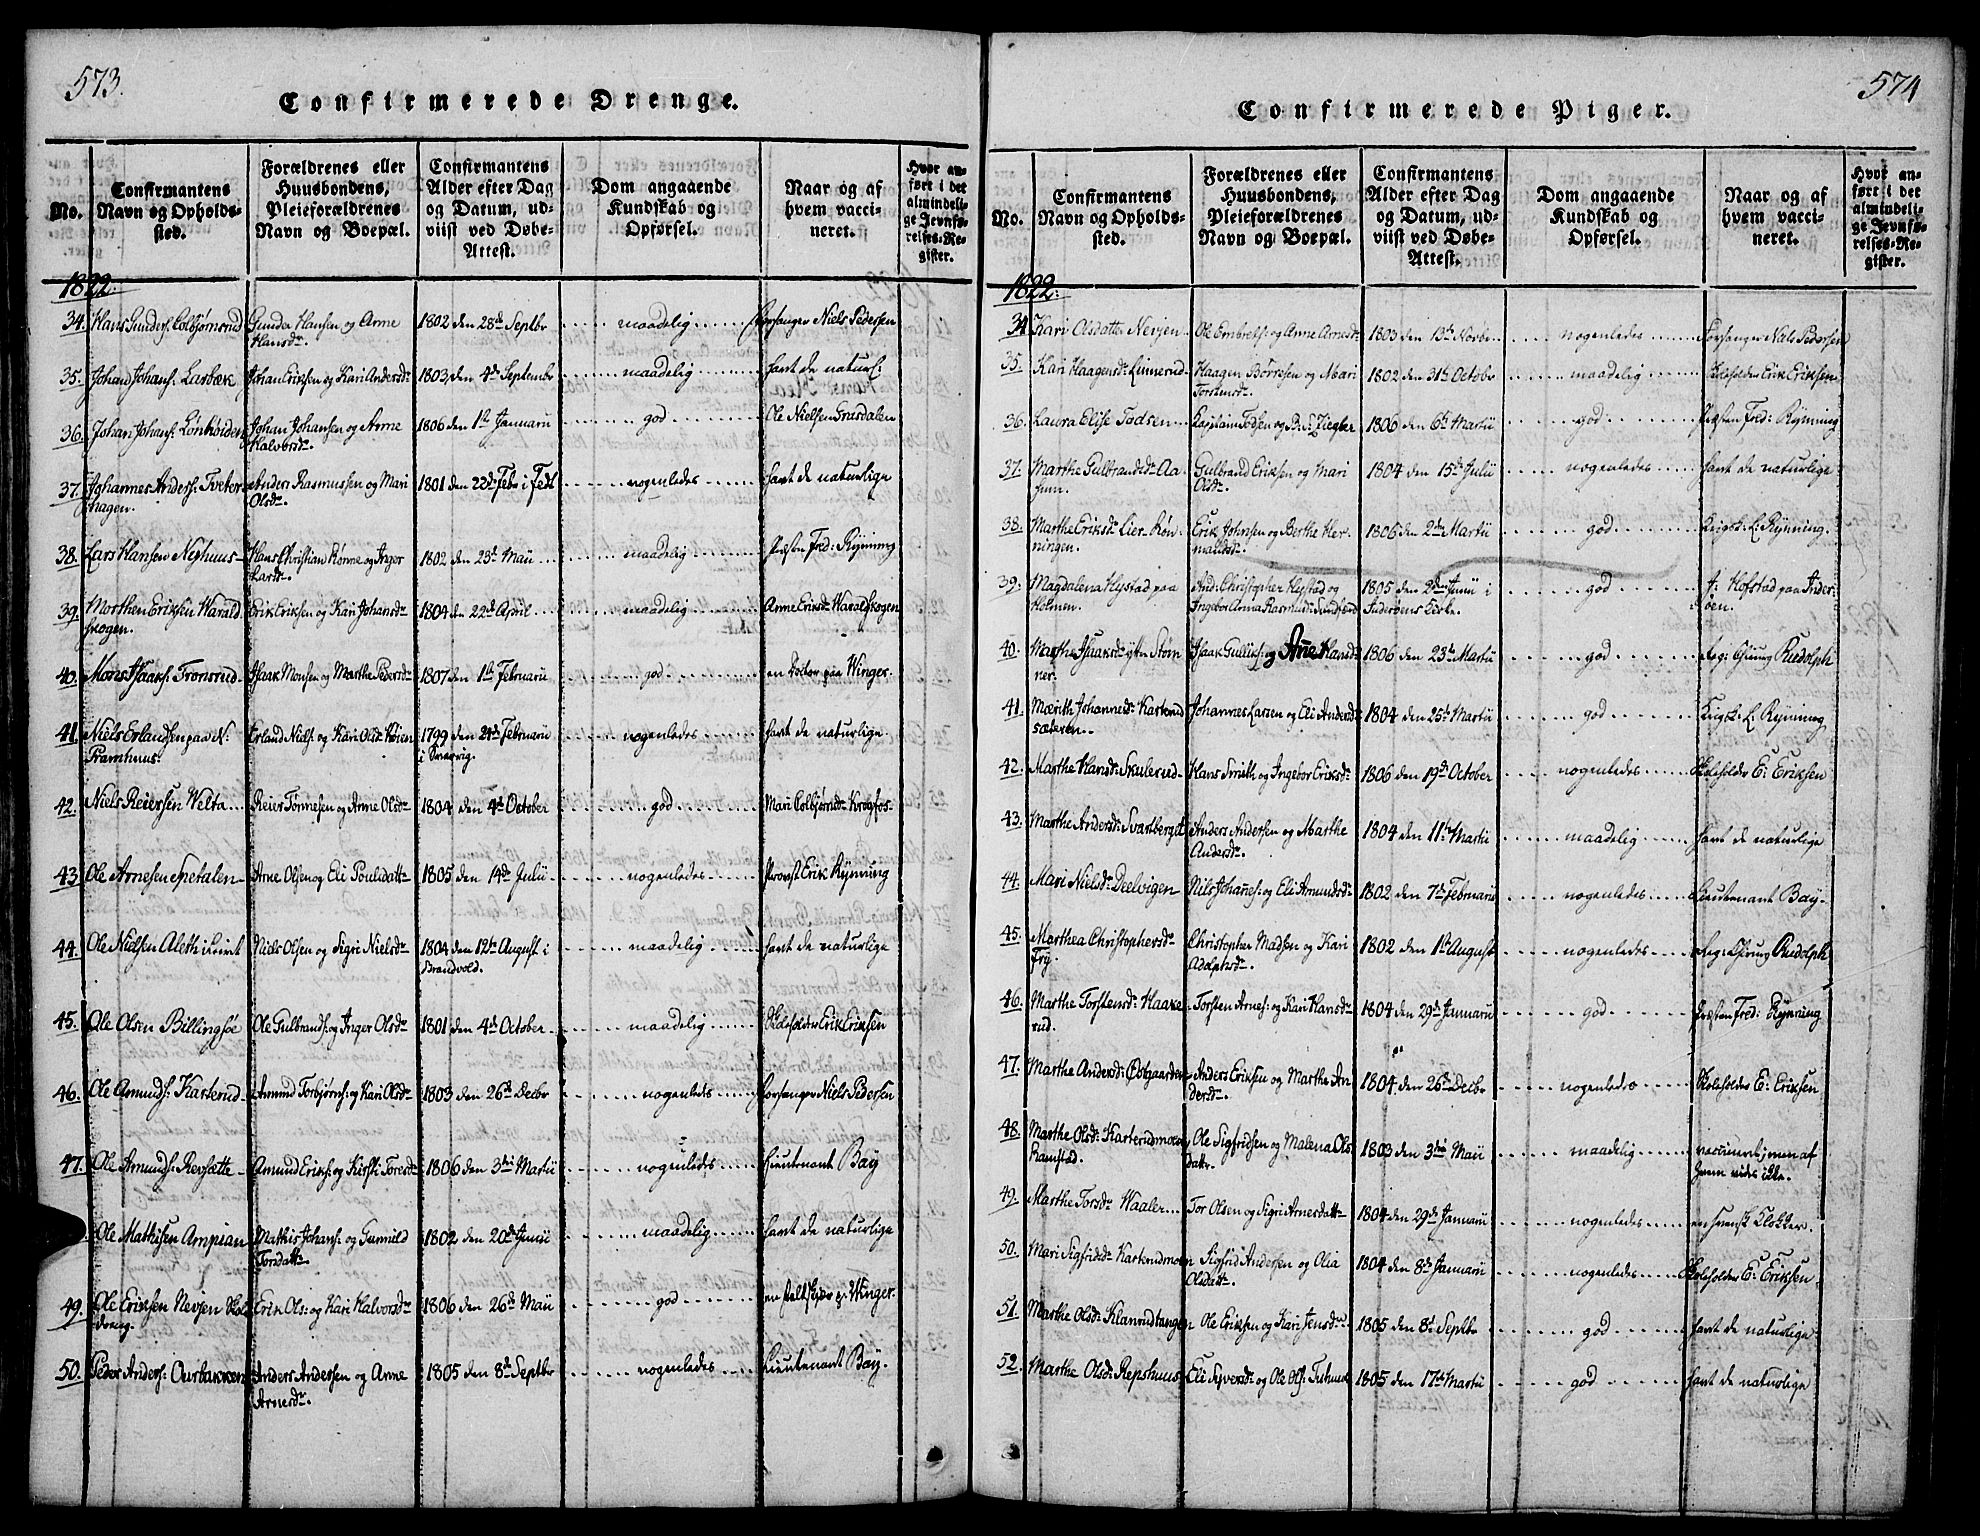 573.
Confirmerede Drenge.
No.
Confirmantens Navn og Opholds-sted.
Forældrenes eller Huusbondens, Pleieforældrenes Navn og Boepæl.
Confirmantens Alder efter Dag og Datum, ud-viist ved Døbe-Attest.
Dom angaaende Kundskab og Opførsel.
Naar og af hvem vacci-neret.
Hvor an-ført i det almindeli-ge Jevnfø-relses-Re-gister.
1822.
34. Hans Gunders: Colbjørnsrud Gunder Hansen og Anne Hansdr. 1802 den 28de Septbr maadelig Forsanger Niels Pedersen
35. Johan Johans: Larbæk Johan Eriksen og Kari Andersdr 1803, den 4de Septembr maadelig havt de naturl:
36. Johan Johans: Johan Johansen og Anne Halvorsdr. 1806 den 1ste Januarii god Ole Nielsen Grasdalen
37. Johannes Anders: Tveter-hagen. Anders Rasmussen og Mari Olsdr. 1801 den 22de Febr i nogenledes havt de naturlige
38. Lars Hansen Nesthuus Hans Christian Rønne og Inger Larsdr. 1802 den 23de Maii maadelig Præsten Fred: Rynning
39. Morthen Eriksen Harald-skogen. Erik Eriksen og Kari Johansdr 1804 den 22de April maadelig Anne Eriksdr Haraldskogen
40. Mons Isaaks: Tronsrud Isaak Monsen og Marthe Pedersdr 1807 den 1ste Februarii god en Doctor paa Winger.
41. Niels Erlandsen paa N: Pramhuus. Erland Niels: og Kari Olsdr 1799 den 24de Februarii i nogenledes havt de naturlige.
42. Niels Reiersen Welta Reier Tønnesen og Anne Olsdr 1804 den 4de October god Mari Colbjørnsdr Krogfos
43. Ole Arnesen Spetalen Arne Olsen og Eli Poulsdatt: 1805 den 14de Julii nogenledes Provst Erik Rynning
44. Ole Nielsen Niels Olsen og Sigri Nielsdr 1804 den 12te August i Brandvold. maadelig havt de naturlige
45. Ole Olsen Billingsøe Ole Gulbrands: og Inger Olsdr 1801 den 4de October maadelig Skoleholder Erik Eriksen
46. Ole Amunds: Karterud Amund Torbjørns: og Kari Olsdr 1803 den 26de Decbr nogenledes Forsanger Niels Pedersen
47. Ole Amunds: Revsætte Amund Eriks: og Kirsti Toresdr 1806 den 3die Martii nogenledes Lieutenant Bay
Ole Mathisen Ampian Mathis Johans: og Gunnild Torsdatt: 1802 den 20de Junii maadelig havt de naturlige
49. Ole Eriksen Nevjen Erik Ols: og Kari Halvorsdr 1806 den 26de Maii god en Feltskjær p: Winger.
50. Peder Anders: Ourbakken Anders Andersen og Anne Arnesdr. 1805 den 8de Septbr nogenledes Lieutenant Bay.
574
Confirmerede Piger.
No.
Confirmantens Navn og Opholds-sted.
Forældrenes eller Huusbondens, Pleieforældrenes Navn og Boepæl.
Confirmantens Alder efter Dag og Datum, ud-viist ved Døbe-Attest.
Dom angaaende Kundskab og Opførsel.
Naar og af hvem vacci-neret.
Hvor an-ført i det almindeli-ge Jevnfø-relses-Re-gister.
1822.
34. Kari Olsdatter Nevjen Ole Embrets: og Anne Arnesdr 1803 den 13de Novbr nogenledes Forsanger Niels Pedersen
35. Kari Haagensdr Linnerud Haagen Børresen og Mari Torstensdr. 1802 den 31te October maadelig Skoleholder Erik Eriksen
36. Laura Elise Todsen Kapitain Todsen og Ziegler 1806 den 6te Martii god Præsten Fred: Rynning
37. Marthe Gulbrandsdr Aa- Gulbrand Eriksen og Mari Olsdr. 1804 den 15de Julii nogenledes havt de naturlige
38. Marthe Eriksdr Lier-Røn-ningen. Erik Johnsen og Berthe Her-mandsdr. 1806 den 2den Martii god Krigsk: L. Rynning.
39. Magdalena Hystad paa Holmen. And: Christopher Hystad og Ingebor Anna Rasmusdr 1805 den 2den Junii i Inderøens Kirke. god J: Hofstad paa Inder-øen.
40. Marthe Isaaksdr ytter Støm-ner. Isaak Gulliks: og Anne Hansdr 1806 den 23de Martii god Reg: Chirurg Rudolph
41. Marith Johannesdr Karterud sæteren. Johannes Larsen og Eli Andersdr 1804 den 25de Martii god Krigsk: L. Rynning
42. Marthe Hansdr Skulerud Hans Smith og Ingebor Eriksdr 1806 den 19de October nogenledes Skoleholder E: Eriksen
43. Marthe Andersdr Svartberget Anders Andersen og Marthe Andersdr. 1804 den 11te Martii maadelig havt de naturlige
44. Mari Nielsdr Deelvigen Nils Johans: og Eli Amundsdr 1802 den 7de Februarii nogenledes Lieutenant Bay
45. Marthea Christophersdr Fry. Christopher Madsen og Kari Adolphsdr. 1802 den 1ste August nogenledes Reg: Chirurg Rudolph
46. Marthe Torstensdr Haake-rud. Torsten Arnes: og Kari Hansdr 1804 den 29de Januarii god Præsten Fred: Rynning
47. Marthe Andersdr Østgaarden Anders Eriksen og Marthe An-dersdr. 1804 den 26de Decbr nogenledes Skoleholder E: Eriksen
48. Marthe Olsdr Karterudmoen Ole Sigfridsen og Malena Ols-datter. 1803 den 3die Maii maadelig vaccineret; men af hvem vides ikke.
49. Marthe Torsdr Waaler Tor Olsen og Sigri Arnesdatter 1804 den 29de Januarii nogenledes en svensk Klokker.
50. Mari Sigfridsdr Karterudmoen Sigfrid Andersen og Olia Olsdatt:. 1804 den 8de Januarii nogenledes Skoleholder E: Eriksen
51. Marthe Olsdr Klanrudtangen Ole Eriksen og Kari Jensdr 1805 den 8de Septbr god havt de naturlige
52. Marthe Olsdr Repshuus Eli Syversdr og Ole 1805 den 17de Martii god havt de naturlige